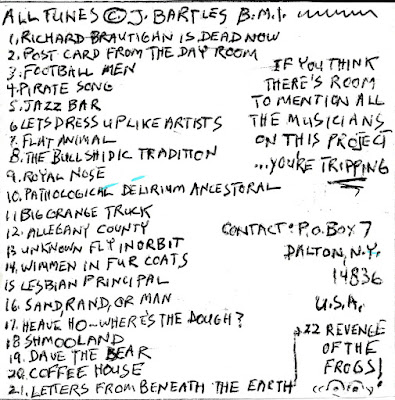 ALL TUNES © J. BARTLES B.M.I.
1. RICHARD BRAUTIGAN IS DEAD NOW
2. POST CARD FROM THE DAY ROOM
3. FOOTBALL MEN
4. PIRATE SONG
5. JAZZ BAR
6 LETS DRESS UP LIKE ARTISTS
7. FLAT ANIMAL
8. THE BULLSHIDIC TRADITION
9. ROYAL NOSE
10. PATHOLOGICAL DELIRIUM ANCESTORAL
11 BIG ORANGE TRUCK
12. ALLEGANY COUNTY
13 UNKNOWN FLY IN ORBIT
14. WIMMEN IN FUR COATS
15 LESBIAN PRINCIPAL
16. SAND, RAND, OR MAN
17. HEAVE HO-WHERE'S THE DOUGH?
18 SHMOOLAND
19. DAVE THE BEAR
20. COFFEE HOUSE
21. LETTERS FROM BENEATH THE EARTH
IF YOU THINK
THERE'S ROOM
TO MENTION ALL
THE MUSICIANS
ON THIS PROJECT
...YOU'RE TRIPPING
CONTACT: P.O. BOX 7
DALTON, N.Y.
14836
U.S.A.
22 REVENGE
OF THE
FROGS!